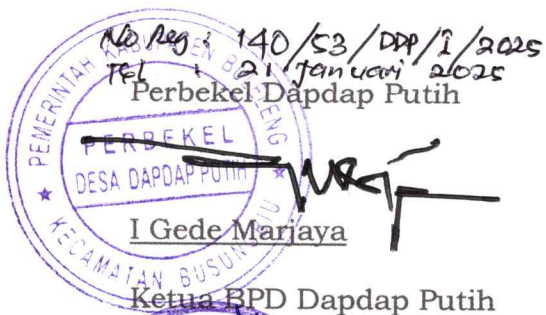 No Reg : 140/53/DDP/I/2025
Tgl : 21 Januari 2025
Perbekel Dapdap Putih
PEMERINTAH KABUPATEN BULELENG
PERBEKEL
DESA DAPDAP PUTIH
KECAMATAN BUSUNGBIU
I Gede Marjaya
Ketua BPD Dapdap Putih